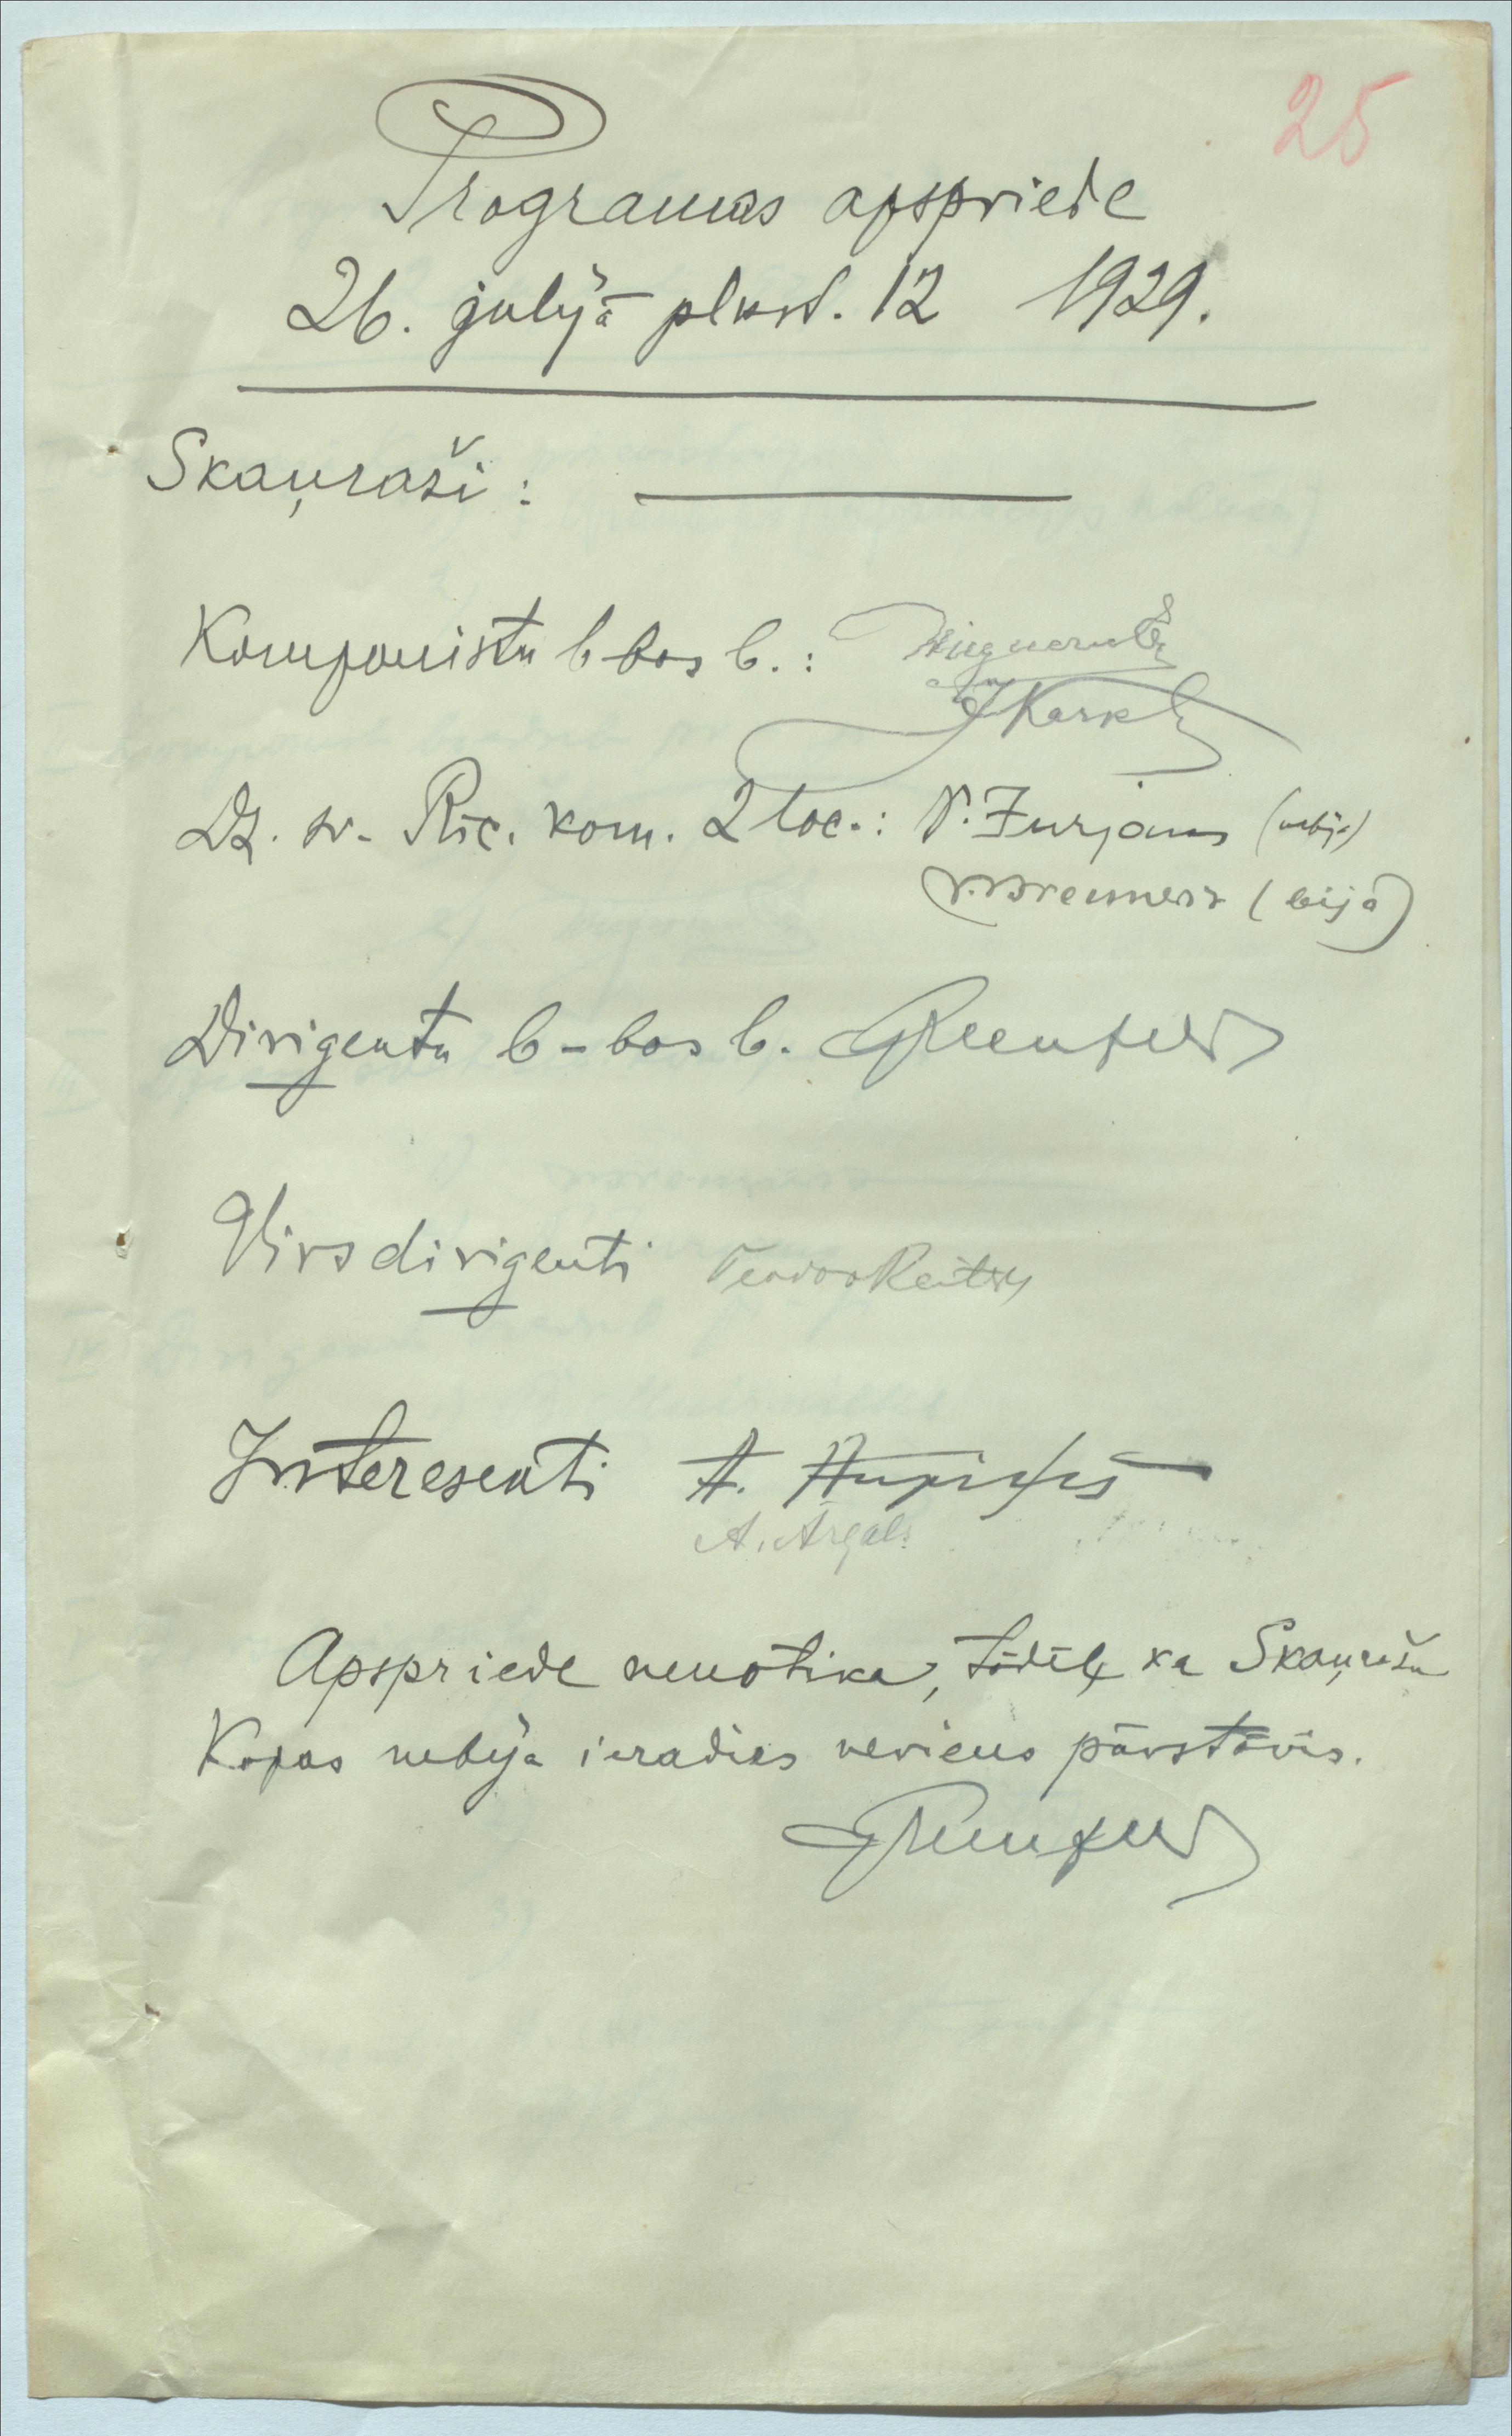 25
Programas apspriede
26. jūlijā plkst. 12 1929.
Skaņraži:
Komponistu b-bas b.:
J Karkl
Dz. sv. Rīc. kom. 2 loc.: P. Jurjans (nebija)
V. Bremmers (bijā)
Dirigentu b-bas b.
Virsdirigenti Teodor Reiters
Interesenti A.
A. Argals
Apspriede nenotika, tādēļ ka Skaņražu
Kopas nebija ieradies neviens pārstāvis.